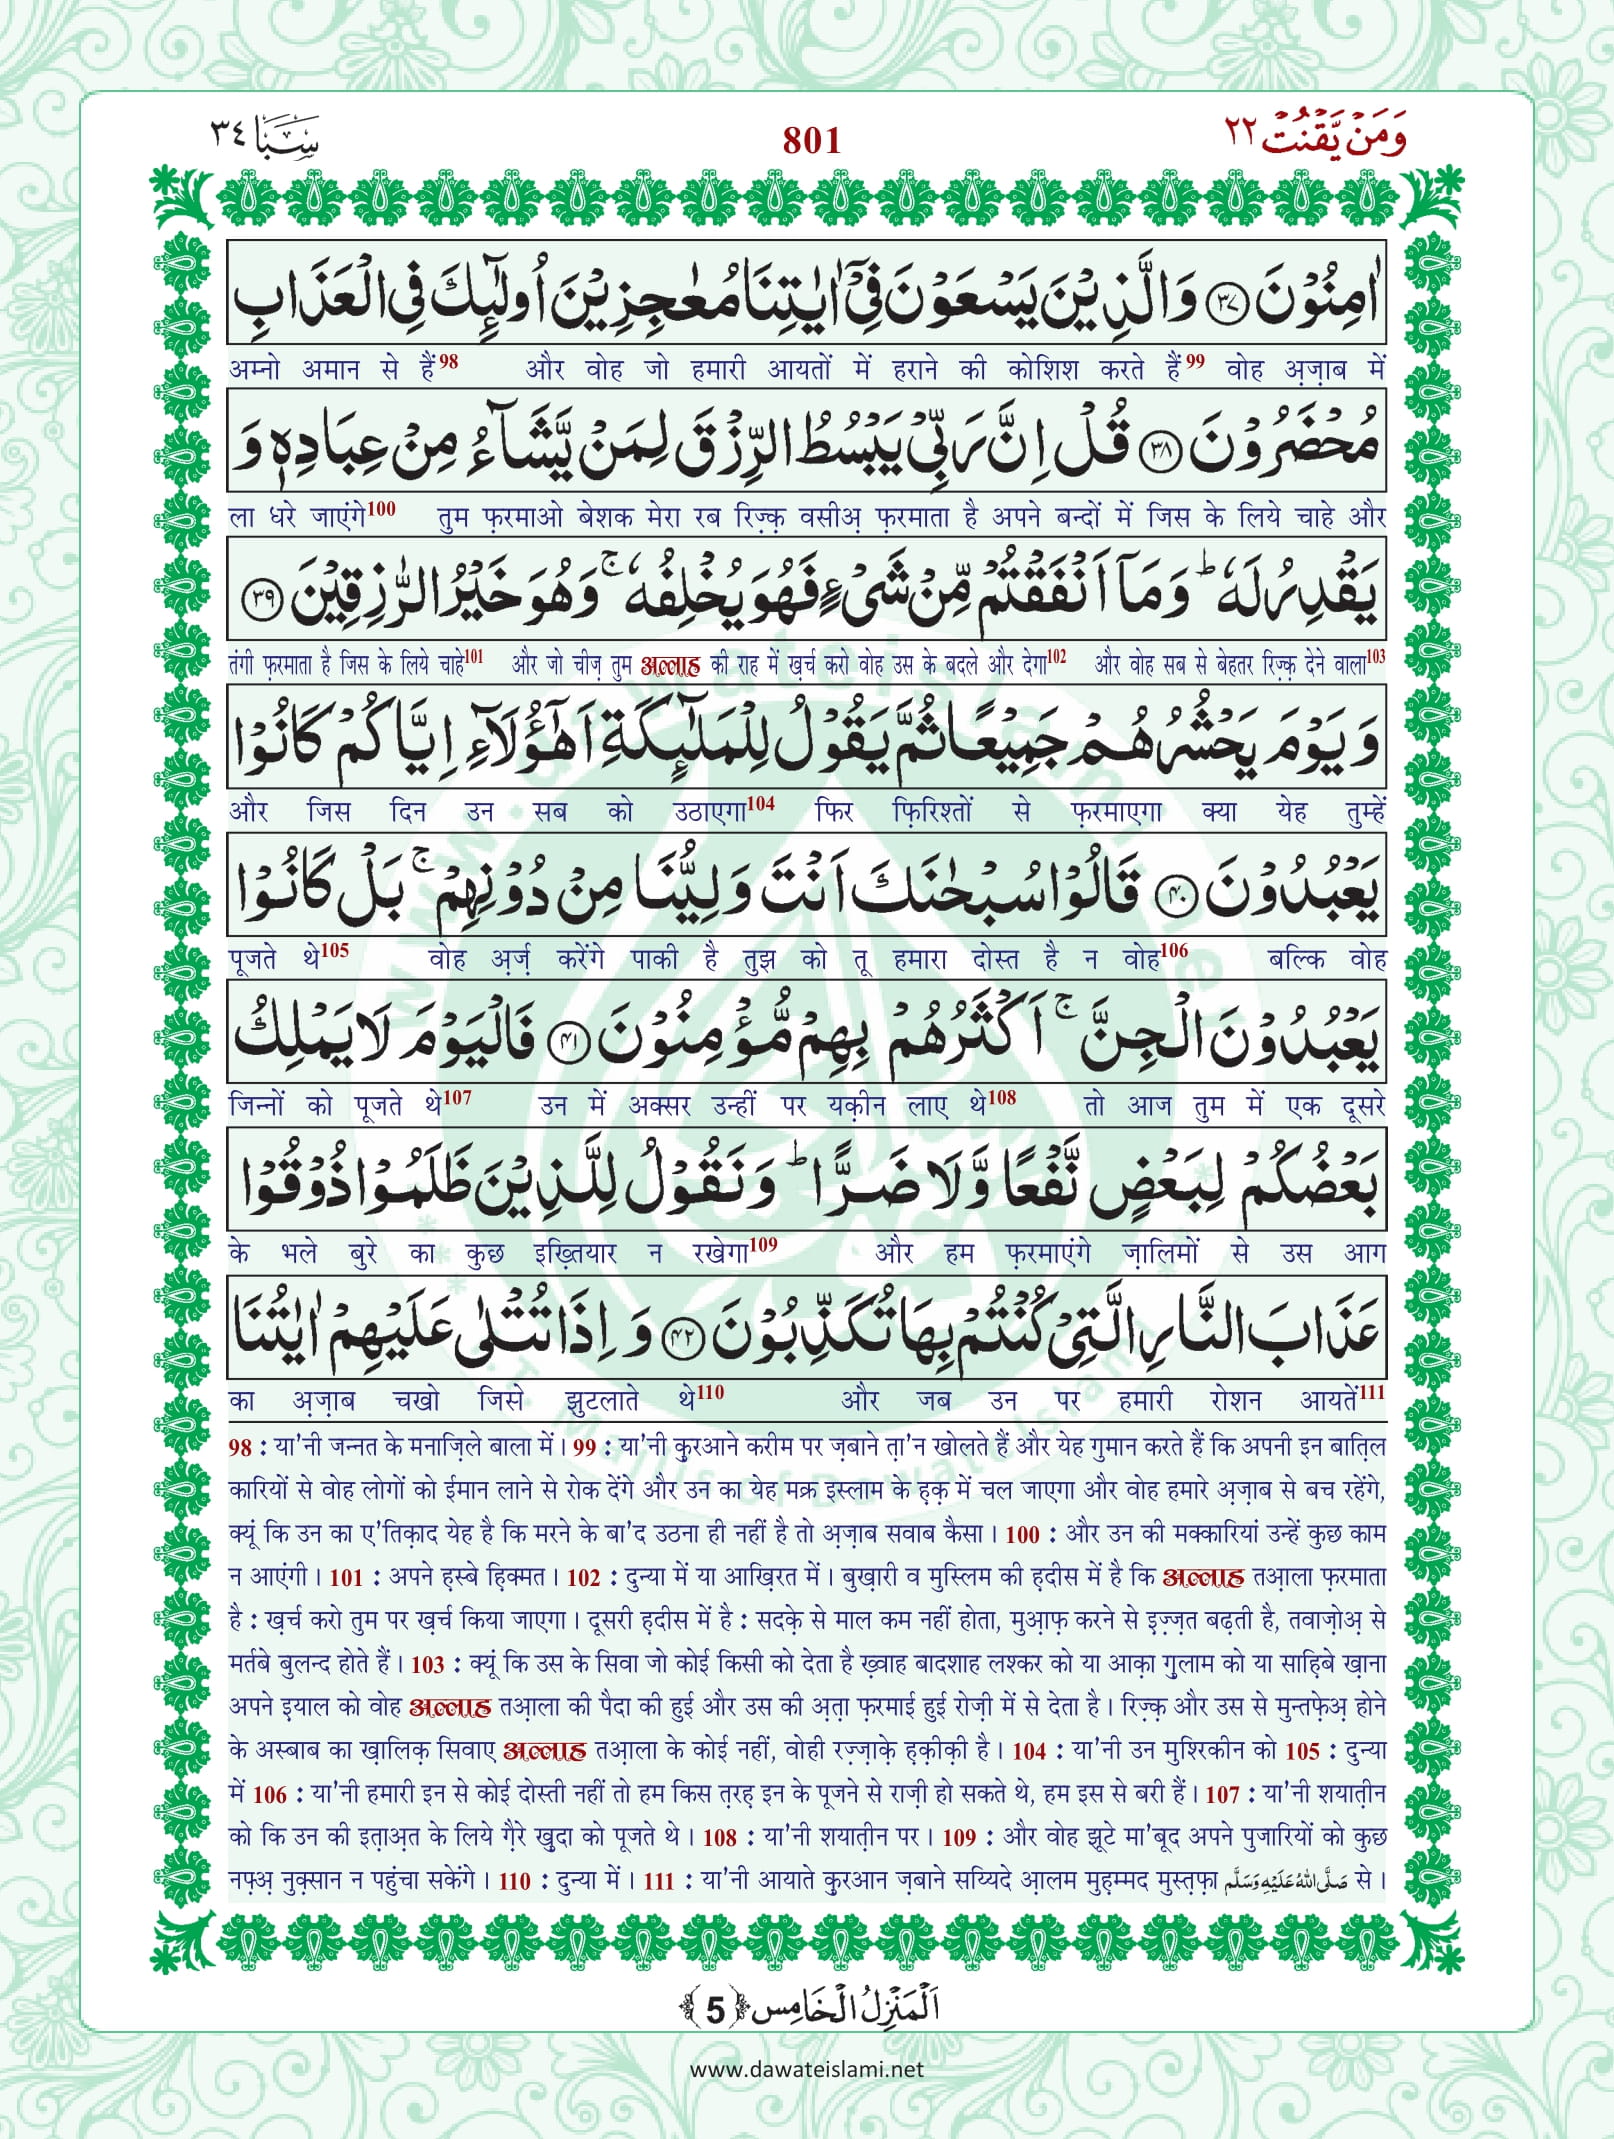 وَمَنْ يَّقْنُتْ ٢٢
801
سَبَا ٣٤
اٰمِنُوْنَ ﴿۳۷﴾ وَالَّذِيْنَ يَسْعَوْنَ فِيْۤ اٰيٰتِنَا مُعٰجِزِيْنَ اُولٰٓئِكَ فِي الْعَذَابِ
अम्नो अमान से हैं98 और वोह जो हमारी आयतों में हराने की कोशिश करते हैं99 वोह अ़ज़ाब में
مُحْضَرُوْنَ ﴿۳۸﴾ قُلْ اِنَّ رَبِّيْ يَبْسُطُ الرِّزْقَ لِمَنْ يَّشَآءُ مِنْ عِبَادِهٖ وَ
ला धरे जाएंगे100 तुम फ़रमाओ बेशक मेरा रब रिज़्क़ वसीअ़ फ़रमाता है अपने बन्दों में जिस के लिये चाहे और
يَقْدِرُ لَهٗ ؕ وَمَاۤ اَنْفَقْتُمْ مِّنْ شَيْءٍ فَهُوَ يُخْلِفُهٗ ۚ وَهُوَ خَيْرُ الرّٰزِقِيْنَ ﴿۳۹﴾
तंगी फ़रमाता है जिस के लिये चाहे101 और जो चीज़ तुम अल्लाह की राह में ख़र्च करो वोह उस के बदले और देगा102 और वोह सब से बेहतर रिज़्क़ देने वाला103
وَيَوْمَ يَحْشُرُهُمْ جَمِيْعًا ثُمَّ يَقُوْلُ لِلْمَلٰٓئِكَةِ اَهٰۤؤُلَآءِ اِيَّاكُمْ كَانُوْا
और जिस दिन उन सब को उठाएगा104 फिर फ़िरिश्तों से फ़रमाएगा क्या येह तुम्हें
يَعْبُدُوْنَ ﴿۴۰﴾ قَالُوْا سُبْحٰنَكَ اَنْتَ وَلِيُّنَا مِنْ دُوْنِهِمْ ۚ بَلْ كَانُوْا
पूजते थे105 वोह अ़र्ज़ करेंगे पाकी है तुझ को तू हमारा दोस्त है न वोह106 बल्कि वोह
يَعْبُدُوْنَ الْجِنَّ ۚ اَكْثَرُهُمْ بِهِمْ مُّؤْمِنُوْنَ ﴿۴۱﴾ فَالْيَوْمَ لَا يَمْلِكُ
जिन्नों को पूजते थे107 उन में अक्सर उन्हीं पर यक़ीन लाए थे108 तो आज तुम में एक दूसरे
بَعْضُكُمْ لِبَعْضٍ نَّفْعًا وَّلَا ضَرًّا ؕ وَنَقُوْلُ لِلَّذِيْنَ ظَلَمُوْا ذُوْقُوْا
के भले बुरे का कुछ इख़्तियार न रखेगा109 और हम फ़रमाएंगे ज़ालिमों से उस आग
عَذَابَ النَّارِ الَّتِيْ كُنْتُمْ بِهَا تُكَذِّبُوْنَ ﴿۴۲﴾ وَ اِذَا تُتْلٰى عَلَيْهِمْ اٰيٰتُنَا
का अ़ज़ाब चखो जिसे झुटलाते थे110 और जब उन पर हमारी रोशन आयतें111
98 : या'नी जन्नत के मनाज़िले बाला में। 99 : या'नी कुरआने करीम पर ज़बाने ता़'न खोलते हैं और येह गुमान करते हैं कि अपनी इन बातिल
कारियों से वोह लोगों को ईमान लाने से रोक देंगे और उन का येह मक्र इस्लाम के ह़क़ में चल जाएगा और वोह हमारे अ़ज़ाब से बच रहेंगे,
क्यूं कि उन का ए'तिक़ाद येह है कि मरने के बा'द उठना ही नहीं है तो अ़ज़ाब सवाब कैसा। 100 : और उन की मक्कारियां उन्हें कुछ काम
न आएंगी। 101 : अपने हस्बे ह़िक्मत। 102 : दुन्या में या आख़िरत में। बुख़ारी व मुस्लिम की ह़दीस में है कि अल्लाह तआ़ला फ़रमाता
है : ख़र्च करो तुम पर ख़र्च किया जाएगा। दूसरी ह़दीस में है : सदक़े से माल कम नहीं होता, मुआ़फ़ करने से इ़ज़्ज़त बढ़ती है, तवाज़ोअ़ से
मर्तबे बुलन्द होते हैं। 103 : क्यूं कि उस के सिवा जो कोई किसी को देता है ख़्वाह बादशाह लश्कर को या आक़ा गुलाम को या साह़िबे ख़ाना
अपने इ़याल को वोह अल्लाह तआ़ला की पैदा की हुई और उस की अ़ता़ फ़रमाई हुई रोज़ी में से देता है। रिज़्क़ और उस से मुन्तफ़ेअ़ होने
के अस्बाब का ख़ालिक़ सिवाए अल्लाह तआ़ला के कोई नहीं, वोही रज़्ज़ाक़े ह़क़ीक़ी है। 104 : या'नी उन मुश्रिकीन को 105 : दुन्या
में 106 : या'नी हमारी इन से कोई दोस्ती नहीं तो हम किस त़रह़ इन के पूजने से राज़ी हो सकते थे, हम इस से बरी हैं। 107 : या'नी शयात़ीन
को कि उन की इत़ाअ़त के लिये गै़रे खुदा को पूजते थे। 108 : या'नी शयात़ीन पर। 109 : और वोह झूटे मा'बूद अपने पुजारियों को कुछ
नफ़्अ़ नुक़्सान न पहुंचा सकेंगे। 110 : दुन्या में। 111 : या'नी आयाते कुरआन ज़बाने सय्यिदे आ़लम मुह़म्मद मुस्त़फ़ा صَلَّى اللهُ عَلَيْهِ وَسَلَّم से।
اَلْمَنْزِلُ الْخَامِس ﴿5﴾
www.dawateislami.net